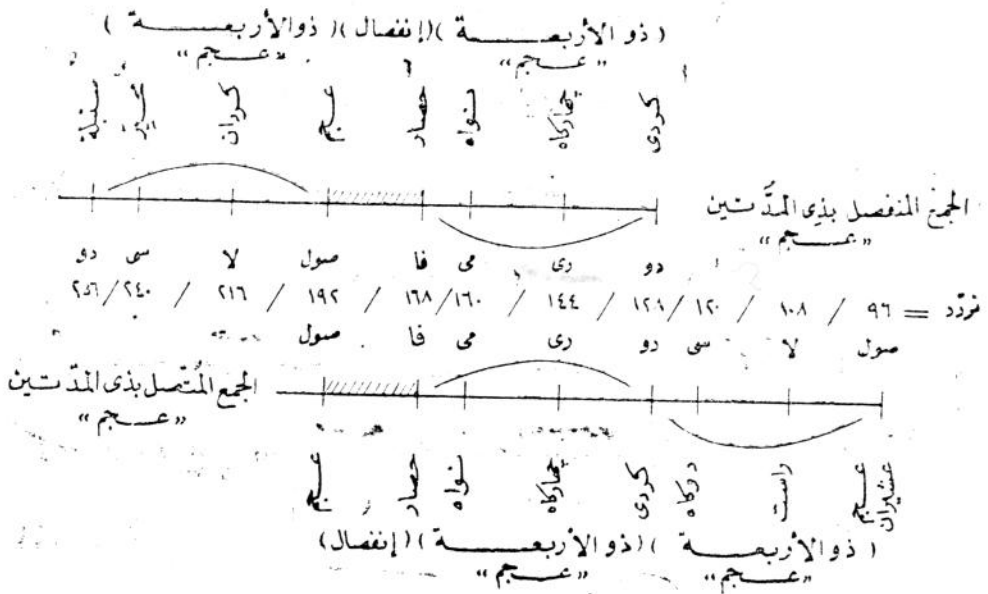 ( ذو الأربعة )(إنفصال)( ذو الأربعة )
„ عجم “ „ عجم “
كردى چهاركاه نواه حصار عجم كردان محير سنبلة
الجمع المنفصل بذى المدّتين
„ عجم “
دو رى مى فا صول لا سى دو
تردّد = ٩٦ / ١٠٨ / ١٢٠ / ١٢٨ / ١٤٤ / ١٦٠ / ١٦٨ / ١٩٢ / ٢١٦ / ٢٤٠ / ٢٥٦
صول لا سى دو رى مى فا صول
الجمع المُتّصل بذى المدّتين
„ عجم “
عجم عشيران راست دوكاه كردى چهاركاه نواه حصار عجم
( ذو الأربعة )( ذو الأربعة )(إنفصال)
„ عجم “ „ عجم “